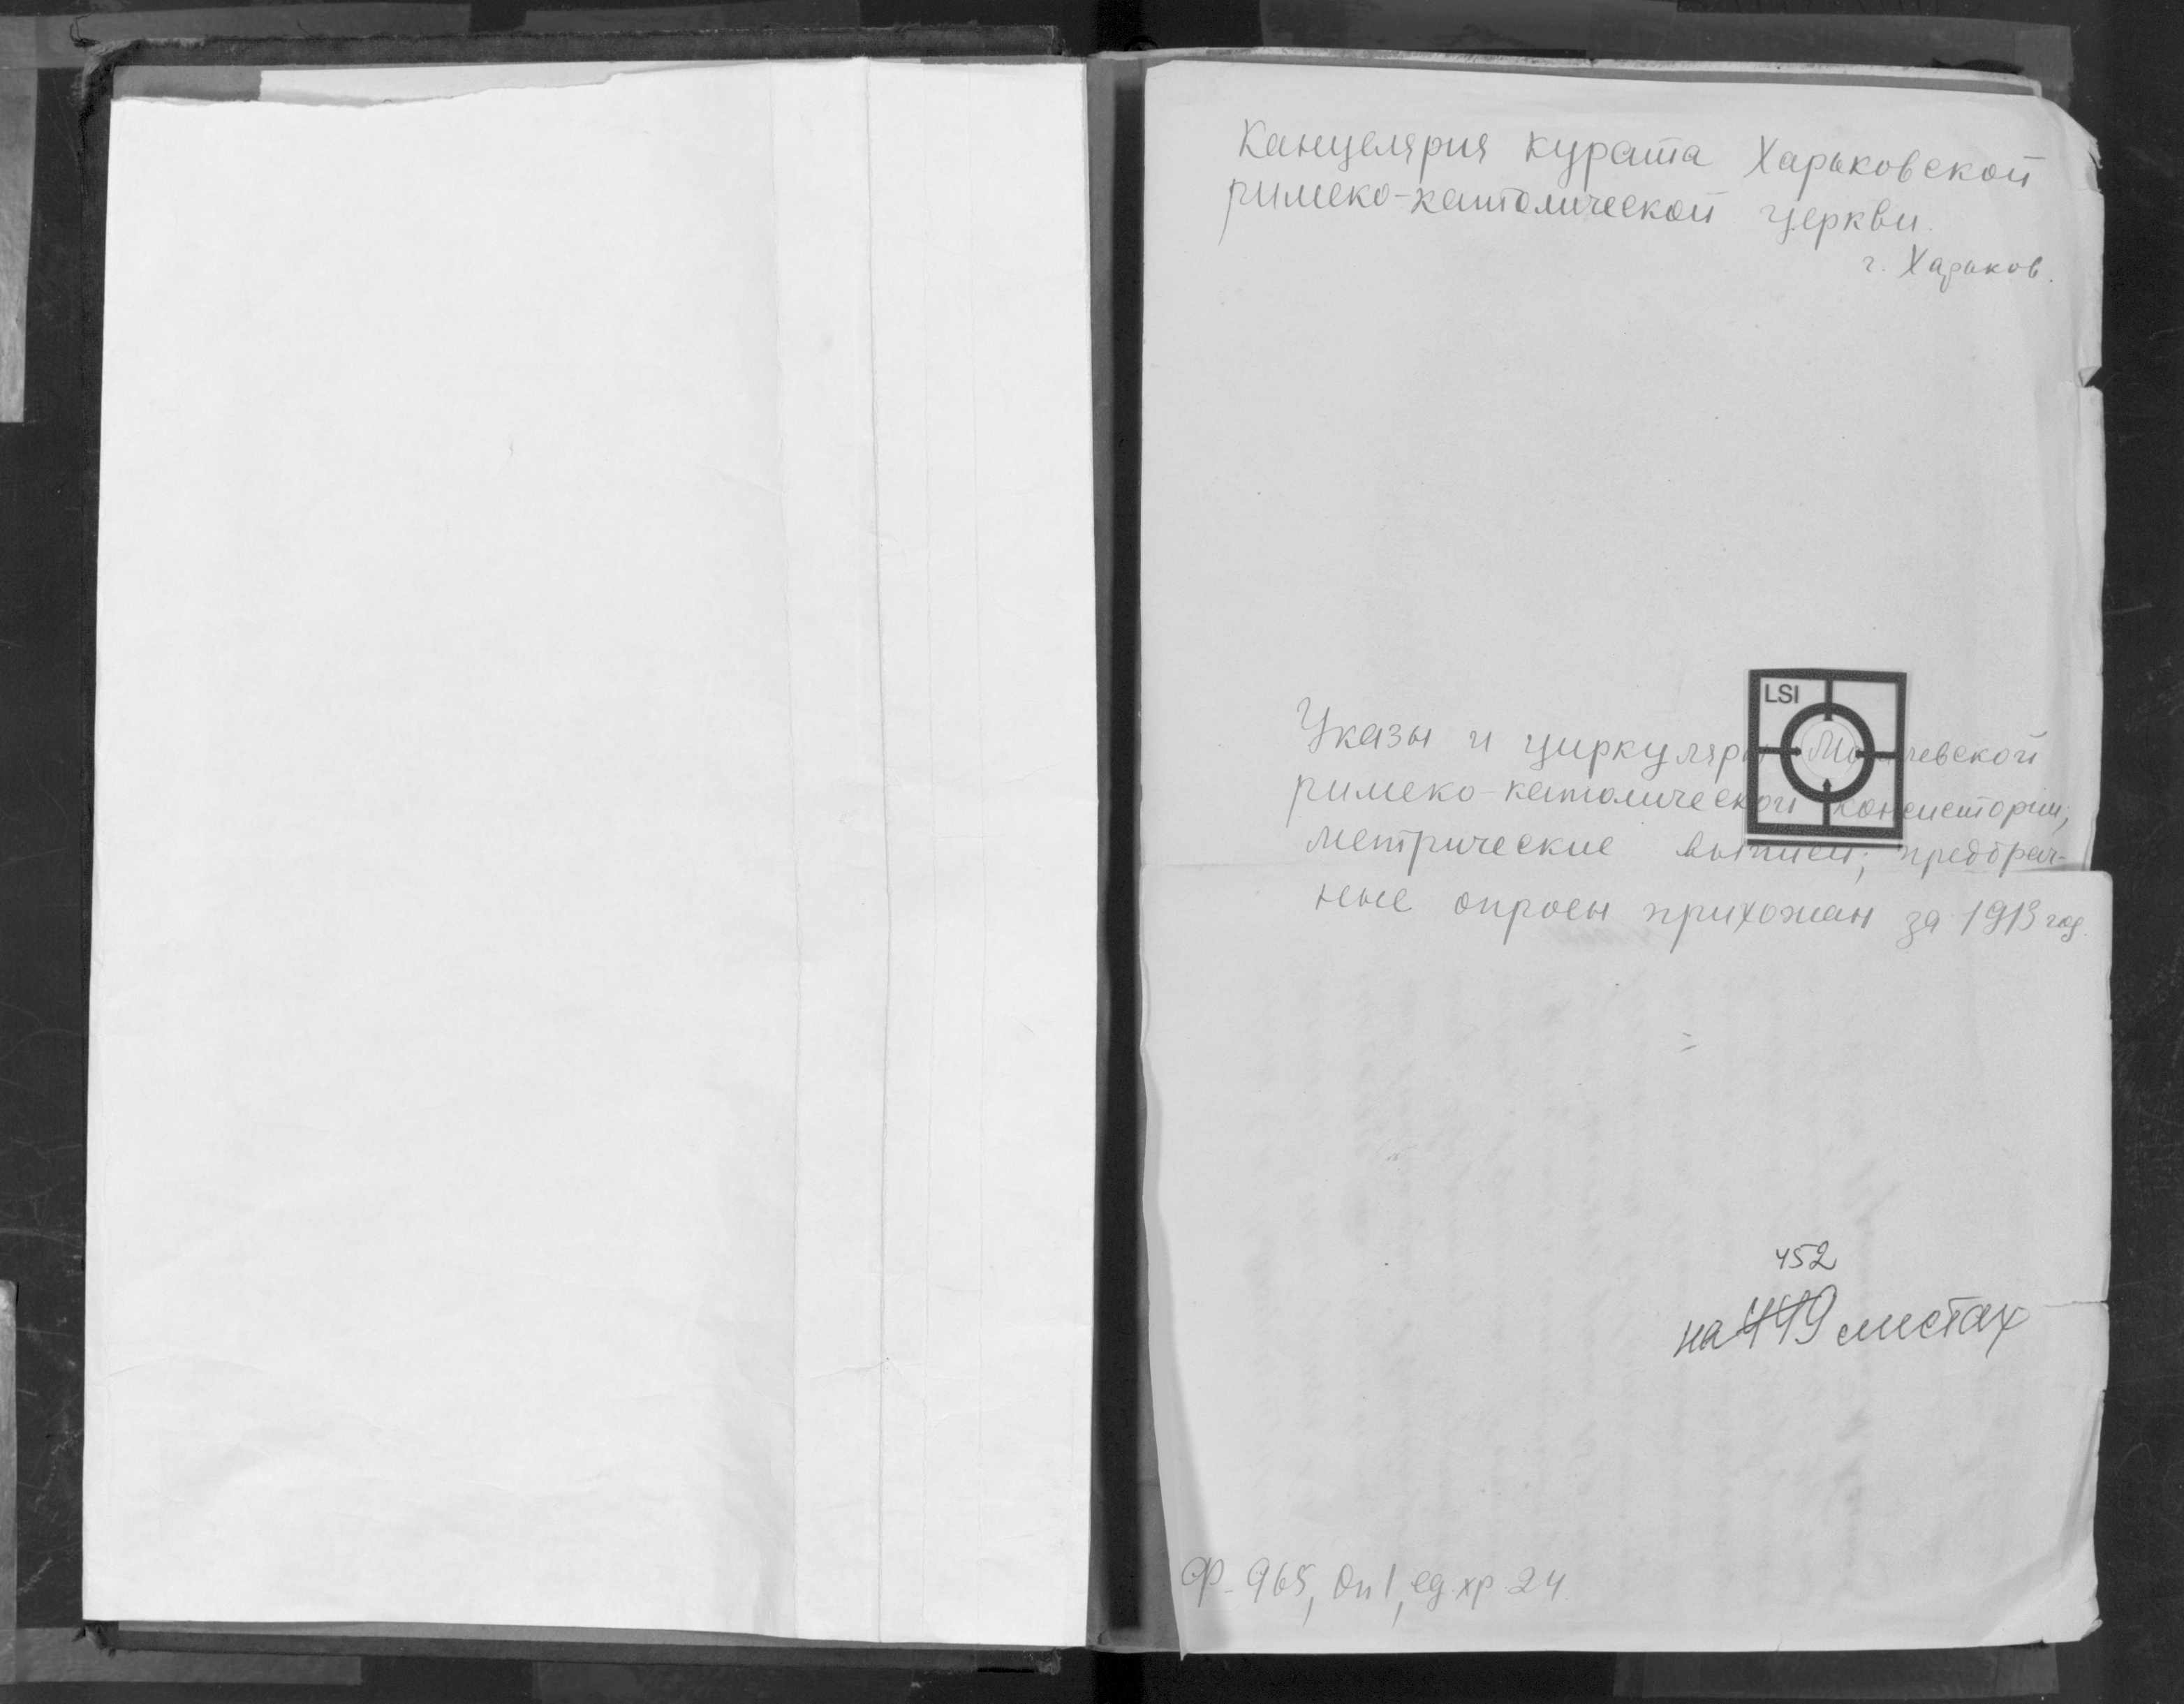 Канцелярия курата Харьковской
римско-католической церкви.
г. Харьков.
LSI
Указы и циркуляры Могилевской
римско-католической консистории;
метрические выписи; предбрач-
ные опросы прихожан за 1913 год.
452
на 419 листах
Ф. 965, Оп 1, ед. хр. 24